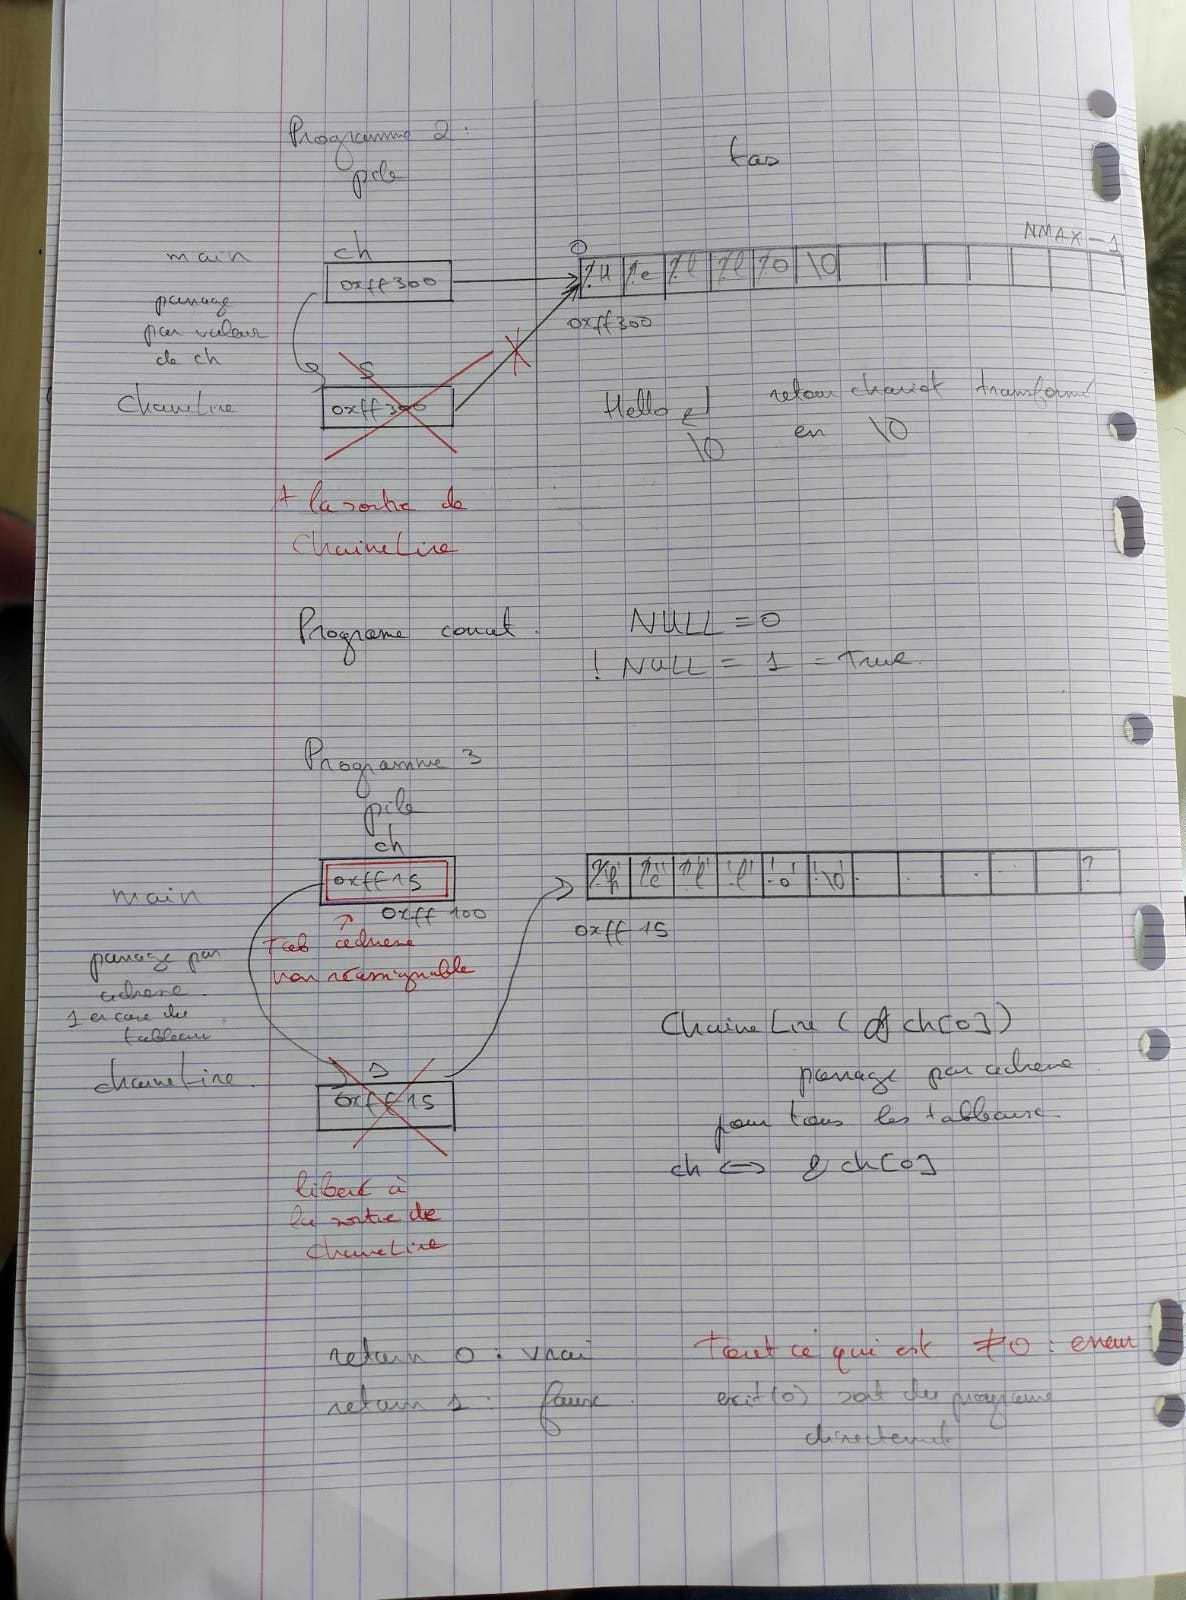 Programme 2 :
pile
tas
main
ch
0xff300
0
NMAX-1
'H 'e 'l 'l 'o \0
0xff300
passage
par valeur
de ch
s
ChaineLire
0xff300
Hello ↵ retour chariot transformé
\0 en \0
A la sortie de
ChaineLire
Programe concat. NULL = 0
! NULL = 1 = True.
Programme 3
pile
ch
main
0xff15
0xff100
'h' 'e' 'l' 'l' 'o' '\0' ?
0xff15
Tab adresse
non réassignable
passage par
adresse.
1 er case du
tableau
chaineLire.
s
0xff15
ChaineLire ( & ch[0])
passage par adresse
pour tous les tableaux
ch <=> & ch[0]
liberé à
la sortie de
ChaineLire
return 0 : vrai
return 1 : faux.
Tout ce qui est ≠0 : erreur
exit(0) sort du programe
directement